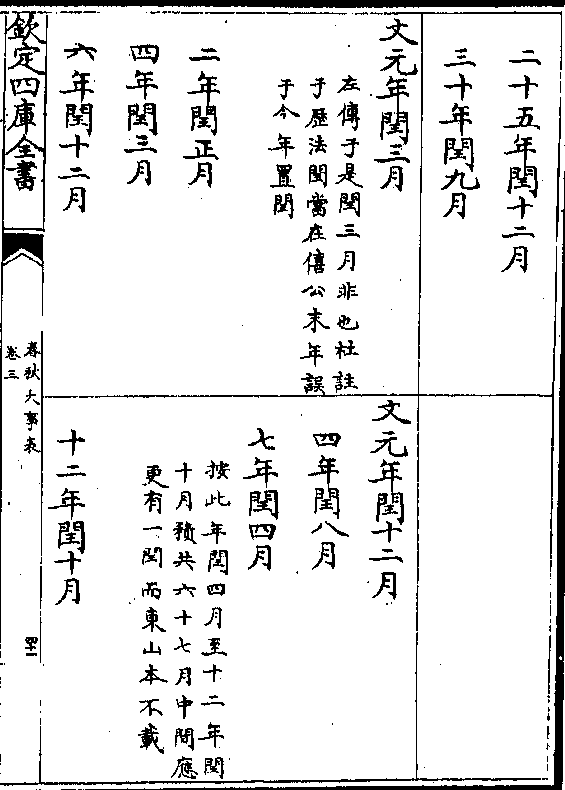 二十五年閏十二月
三十年閏九月
文元年閏三月
左傳于是閏三月非也杜註
于歷法閏當在僖公末年誤
于今年置閏
二年閏正月
四年閏三月
六年閏十二月
文元年閏十二月
四年閏八月
七年閏四月
按此年閏四月至十二年閏
十月積共六十七月中間應
更有一閏而東山本不載
十二年閏十月
欽定四庫全書
春秋大事表
卷三